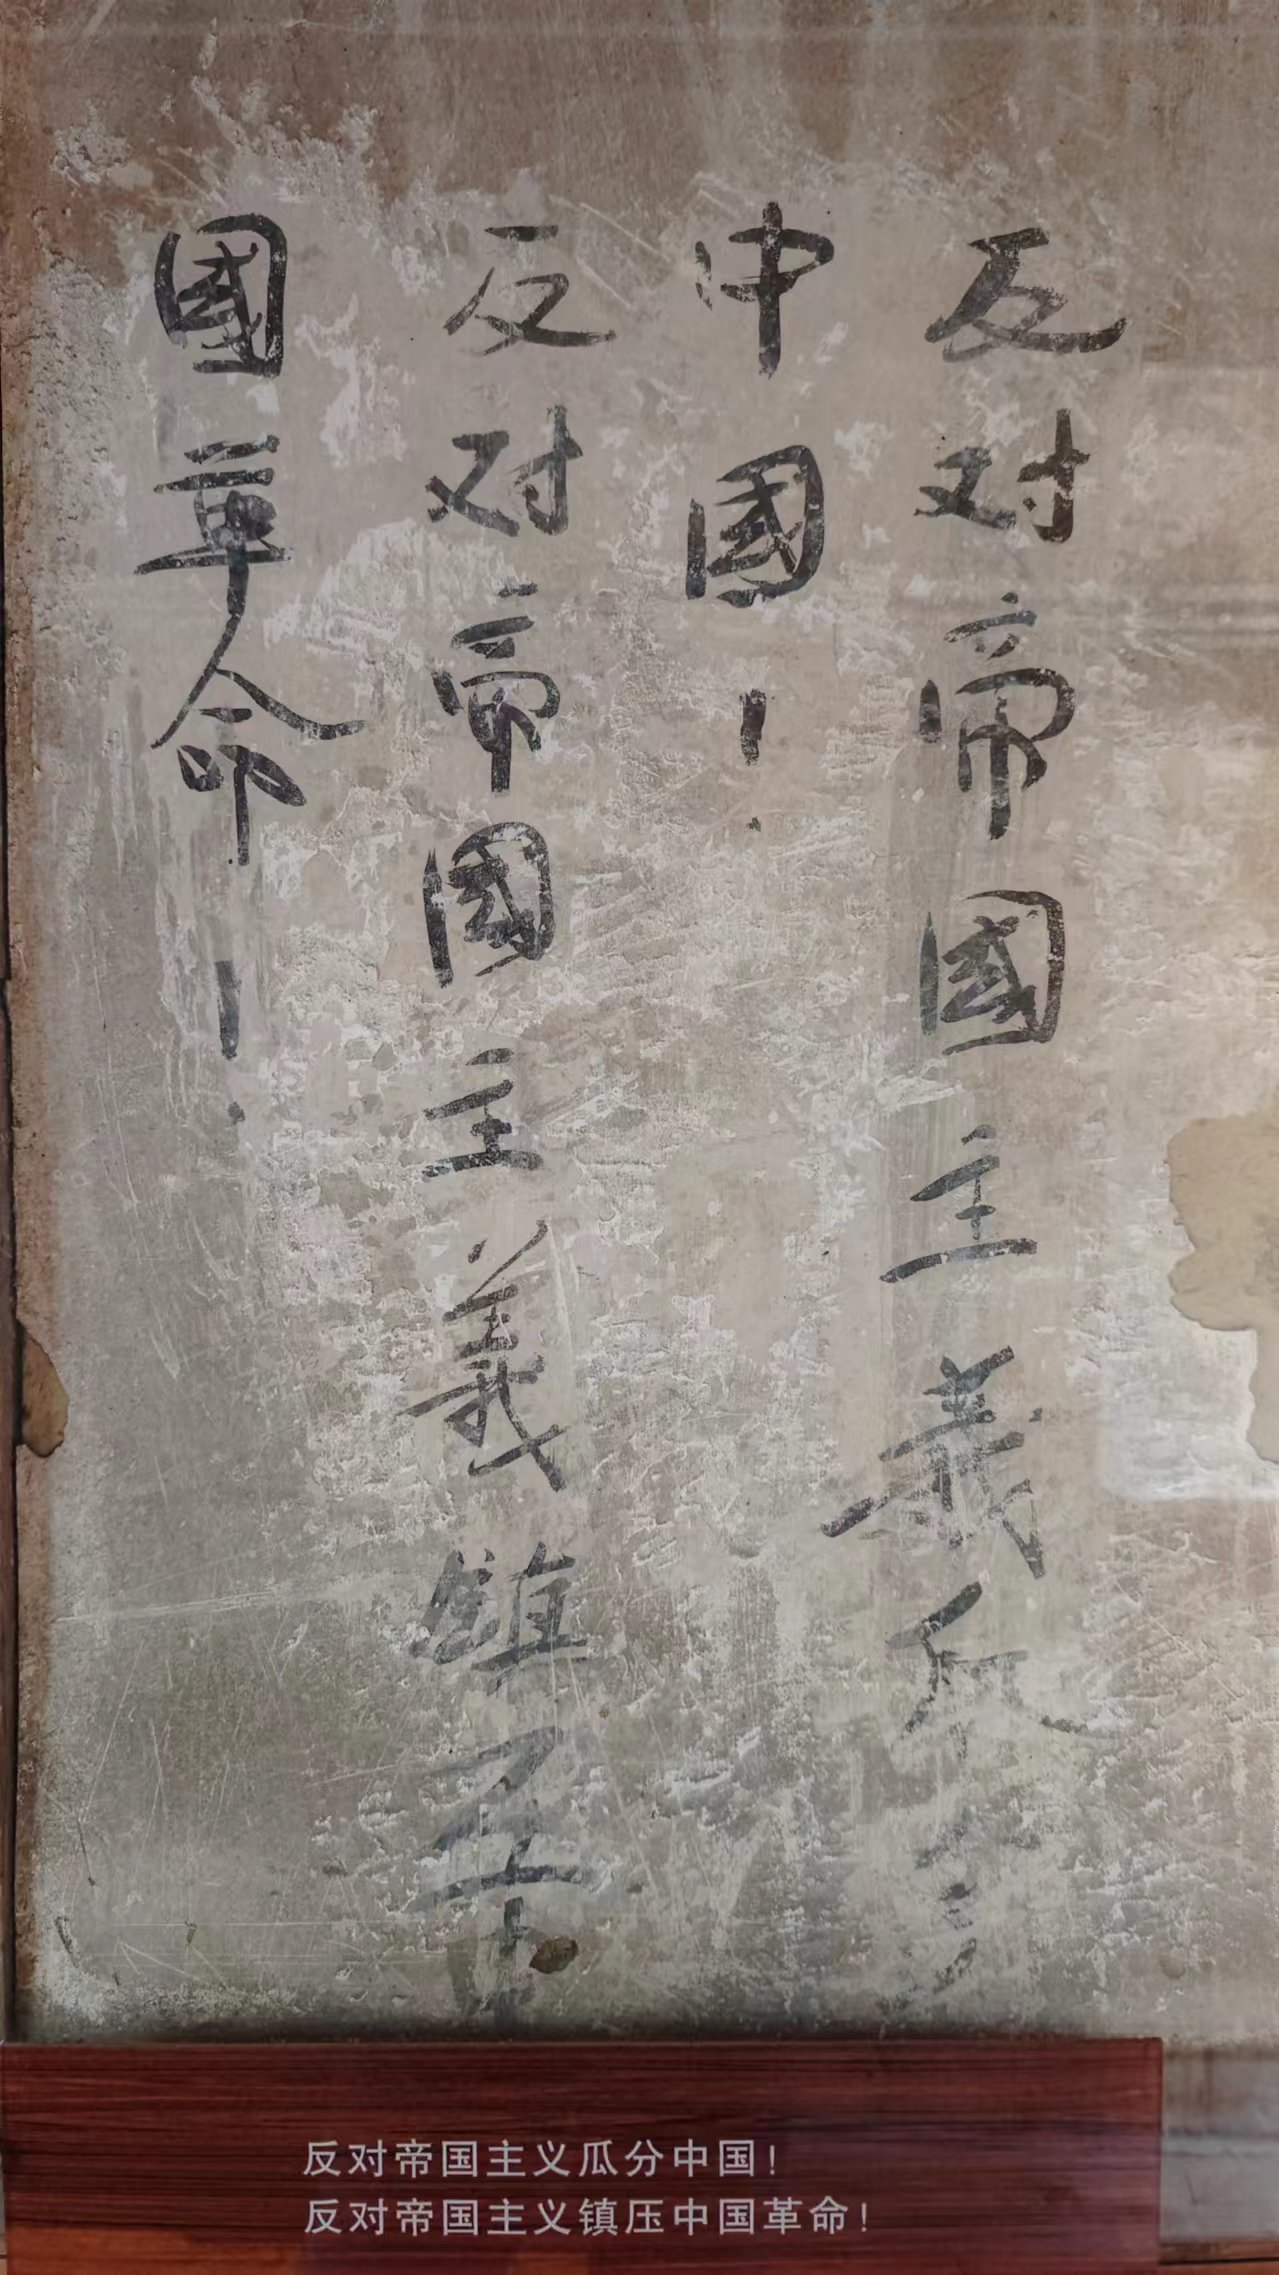 反对帝國主義瓜分
中國!
反对帝國主義镇压中
國革命!
反对帝国主义瓜分中国!
反对帝国主义镇压中国革命!